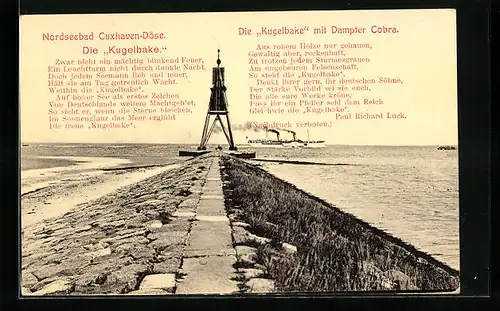 Nordseebad Cuxhaven-Döse.
Die „Kugelbake“ mit Dampfer Cobra.
Die „Kugelbake.“
Zwar nicht ein mächtig blinkend Feuer,
Ein Leuchtturm nicht durch dunkle Nacht,
Doch jedem Seemann lieb und teuer,
Hält sie am Tag getreulich Wacht.
Weithin die „Kugelbake“.
Auf hoher See als erstes Zeichen
Von Deutschlands weitem Machtgebiet,
So sieht er, wenn die Sterne bleichen,
Im Sonnenglanz das Meer erglüht
Die treue „Kugelbake“.
Aus rohem Holze nur gehauen,
Gewaltig aber, reckenhaft,
Zu trotzen jedem Sturmesgrauen
Am ungeheuren Felsenschaft,
So steht die „Kugelbake“.
Denkt Ihrer gern, ihr deutschen Söhne,
Der Stärke Vorbild sei sie euch,
Die alle eure Werke kröne,
Dass ihr ein Pfeiler seid dem Reich
Gleichwie die „Kugelbake“.
Paul Richard Luck.
(Nachdruck verboten.)